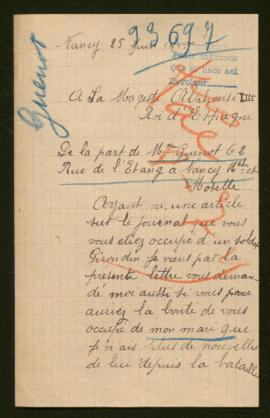 93697
Nancy 25
Guenot
A La Majesté Alphonse XIII
Roi d'Espagne
De la part de Mme Guenot 62
Rue de l'Etang à Nancy Mthe et
Moselle
Ayant vu une article
sur le journal que vous
vous étiez occupé d'un soldat
Girondin je viens par la
présente lettre vous deman
dé moi aussi si vous
auriez la bonté de vous
occupé de mon mari que
je n'ais plus de nouvelles
de lui depuis la bataille